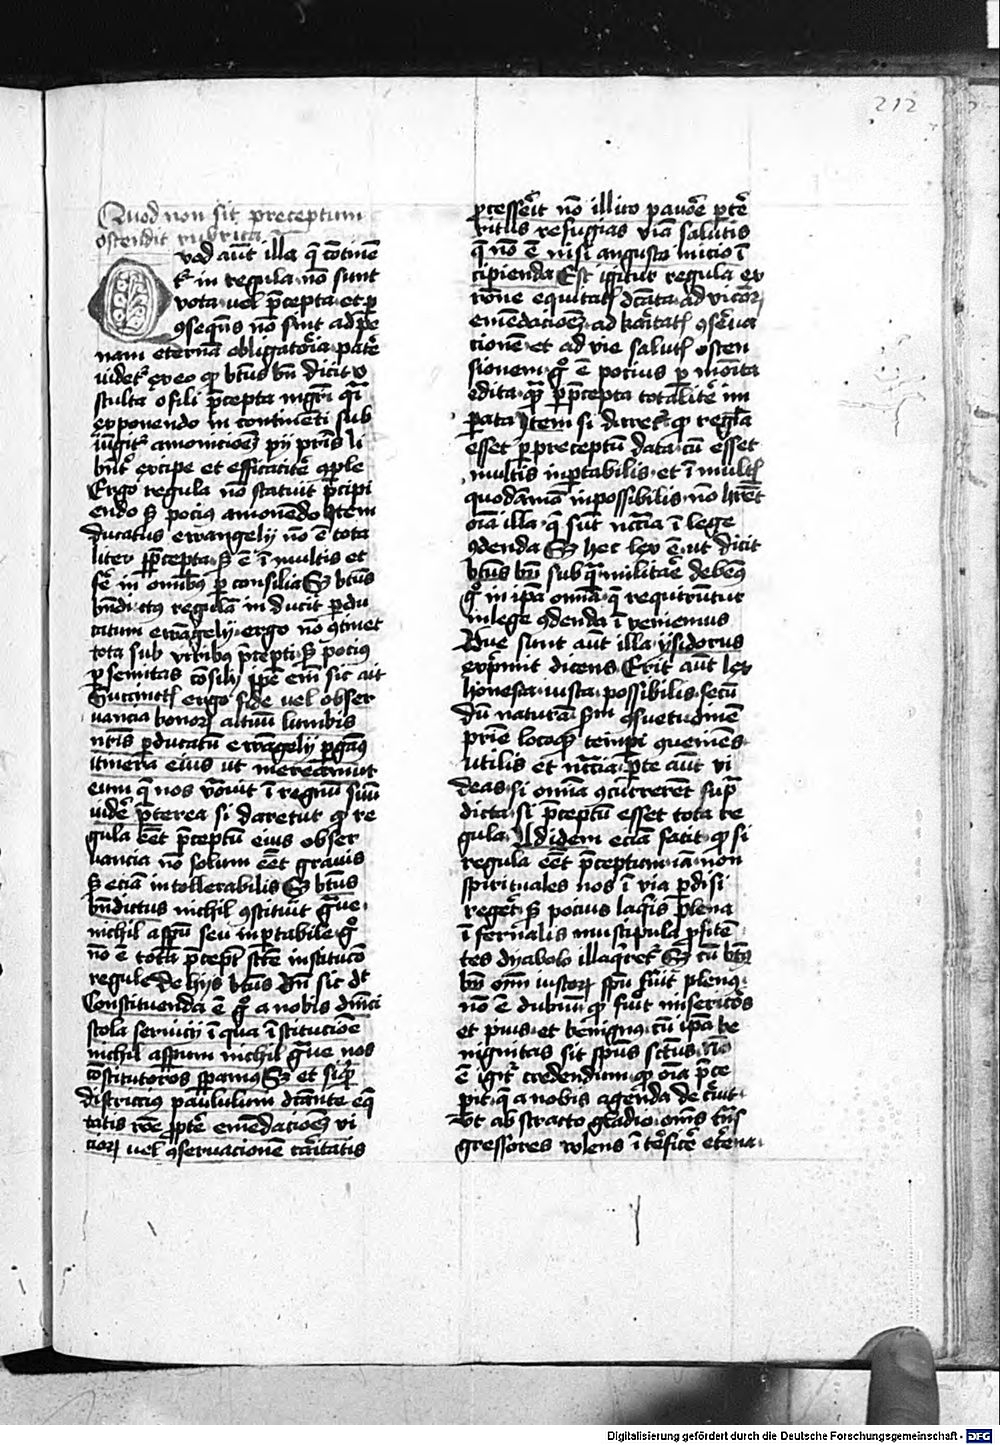 212
Quod non sit preceptum
ostendit rubrica
vod aūt illa q̄ ꝯtinē
t᷑ in regula nō sunt
vota uel p̄cepta et ꝑ
ꝯseqn̄s nō sint ad pe
nam eternā obligatoria patꝫ
uidet᷑ ex eo qꝫ btūs bn̄ dicit o
sculta o fili p̄cepta mgr̄i qͣ
exponendo in continēti sub
iūgit᷑ amonicioēs pij pr̄is li
bn̄t᷑ excipe et efficacit᷑ ꝯple
Ergo regula nō statuit p̄cipi
endo sꝫ pociꝰ amonēdo Itē
ducatus ewangelij nō ē tota
liter p̄cepta sꝫ ē ī multis et
fe᷑ in omībꝰ ꝑ consilia Sꝫ btūs
bn̄dictus regulā in ducit ꝑdu
catum ewāgelij ergo nō ꝯtinet
tota sub p̄cepti sꝫ pociꝰ
ꝑ semitas cōsilij ip̄e em̄ sic ait
Succinctꝭ ergo fide uel obser
uancia bonoꝝ actuū lumbis
nr̄is ꝑ ducatū ewāgelij ꝑgaꝰ
itinera eius ut mereamur
eum q̄ nos vocauit ī regnū suū
uide᷑ p̄terea si daretur qꝫ re
gula eēt p̄ceptū eius obser
uancia nō solum eēt grauis
sꝫ eciā intollerabilis Sꝫ btūs
bn̄dictus nichil ꝯstituit gͣue
nichil aspū seu inportabile gͦ
nō ē tota p̄cept sctē institucō
regule De hijs btūs Bn̄ sic dt
Constituenda ē gͦ a nobis dn̄ici
scola seruicij ī qua īstitucioē
nichil asperum nichil gͣue nos
ꝯstituturos speramꝰ Sꝫ et si qͥd
districciꝰ paululum dictante eq̄
tatis rōe ꝓpt᷑ emēdacioēs vi
cioꝝ uel ꝯseruacionē caritatis
ꝓcesserit nō illico pauore ꝑte᷑
ritus refugias viā salutis
q̄ nō ē nisi angusto inicio ī
cipienda Est igitur regula ex
rōne equitatꝭ dc̄ata ad vicioꝝ
emēdacioēs ad karitatꝭ ꝯserua
cionē et ad vie salutꝭ osten
sionem gͦ ē pocius ꝑ monita
edita qͣꝫ ꝑ p̄cepta totalite᷑ im
perata Item si daret᷑ qꝫ regla
esset ꝑ preceptū data cū esset
multis inportabilis et ī multꝭ
quodāmō inpossibilis nō hr̄et
oīa illa q̄ sūt nc̄cia ī lege
ꝯdenda Sꝫ hec lex ē ut dicit
btūs bn̄ sub qͣ militare debemꝰ
gͦ in ip̄a omīa q̄ requiruntur
in lege ꝯdenda īveniemus
Que sunt aūt illa ysidorus
exprimit dicens Erit aūt lex
honesta iusta possibilis secū
dū naturā scdm ꝯsuetudinē
prie locoqꝫ tempi ꝯueniēs
utilis et nc̄cia ꝑte aūt vi
deas si omīa ꝯcurrerēt sup̄
dicta si p̄ceptū esset tota re
gula Ad idem eciā facit qꝫ si
regula eēt p̄ceptum iā non
spirituales nos ī via ꝑdisi
reget sꝫ pocius laqueis plena
īfernalis muscipula ꝓfitē
tes dyabolo illaqueret᷑ Sꝫ cū btūs
bn̄ oīm iustoꝝ spū fuit plenꝰ
nō ē dubium qꝫ fuit misericors
et pius et benignꝰ cū ip̄a be
nignitas sit spūs sctūs nō
ē igit᷑ credendum qꝫ oīa p̄ce
pit q̄ a nobis agenda decreuit
vt abstracto gladio oms tn̄s
gressores volens īterficere eterna
Digitalisierung gefördert durch die Deutsche Forschungsgemeinschaft - DFG